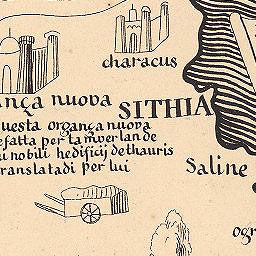 characus
ança nuova
SITHIA
uesta organça nuova
efatta per tamberlan de
i nobili hedificij dethauris
ranslatadi per lui
Saline
ogr